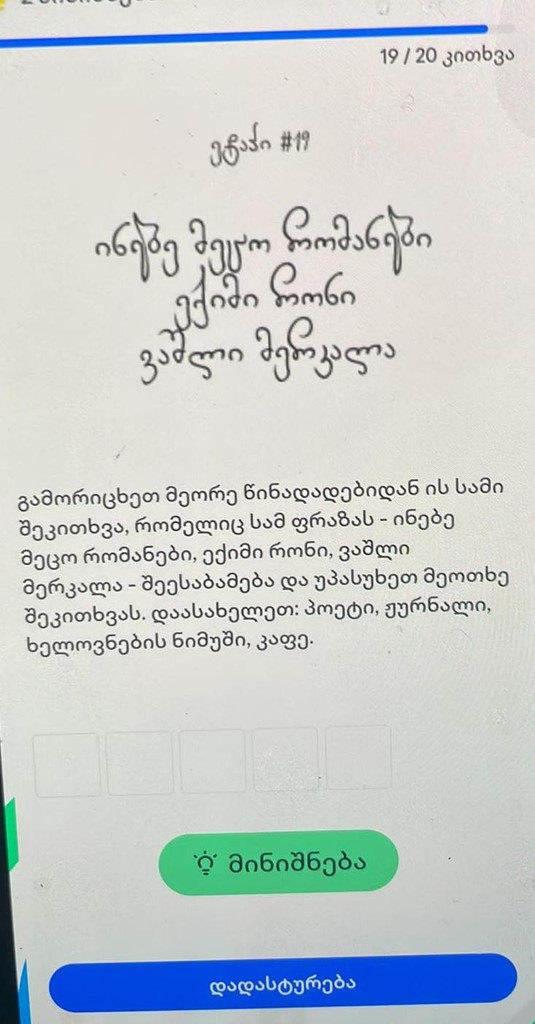 19 / 20 კითხვა
ეტაპი #19
ინებე მეცო რომანები
ექიმი რონი
ვაშლი მერკალა
გამორიცხეთ მეორე წინადადებიდან ის სამი
შეკითხვა, რომელიც სამ ფრაზას - ინებე
მეცო რომანები, ექიმი რონი, ვაშლი
მერკალა - შეესაბამება და უპასუხეთ მეოთხე
შეკითხვას. დაასახელეთ: პოეტი, ჟურნალი,
ხელოვნების ნიმუში, კაფე.
მინიშნება
დადასტურება